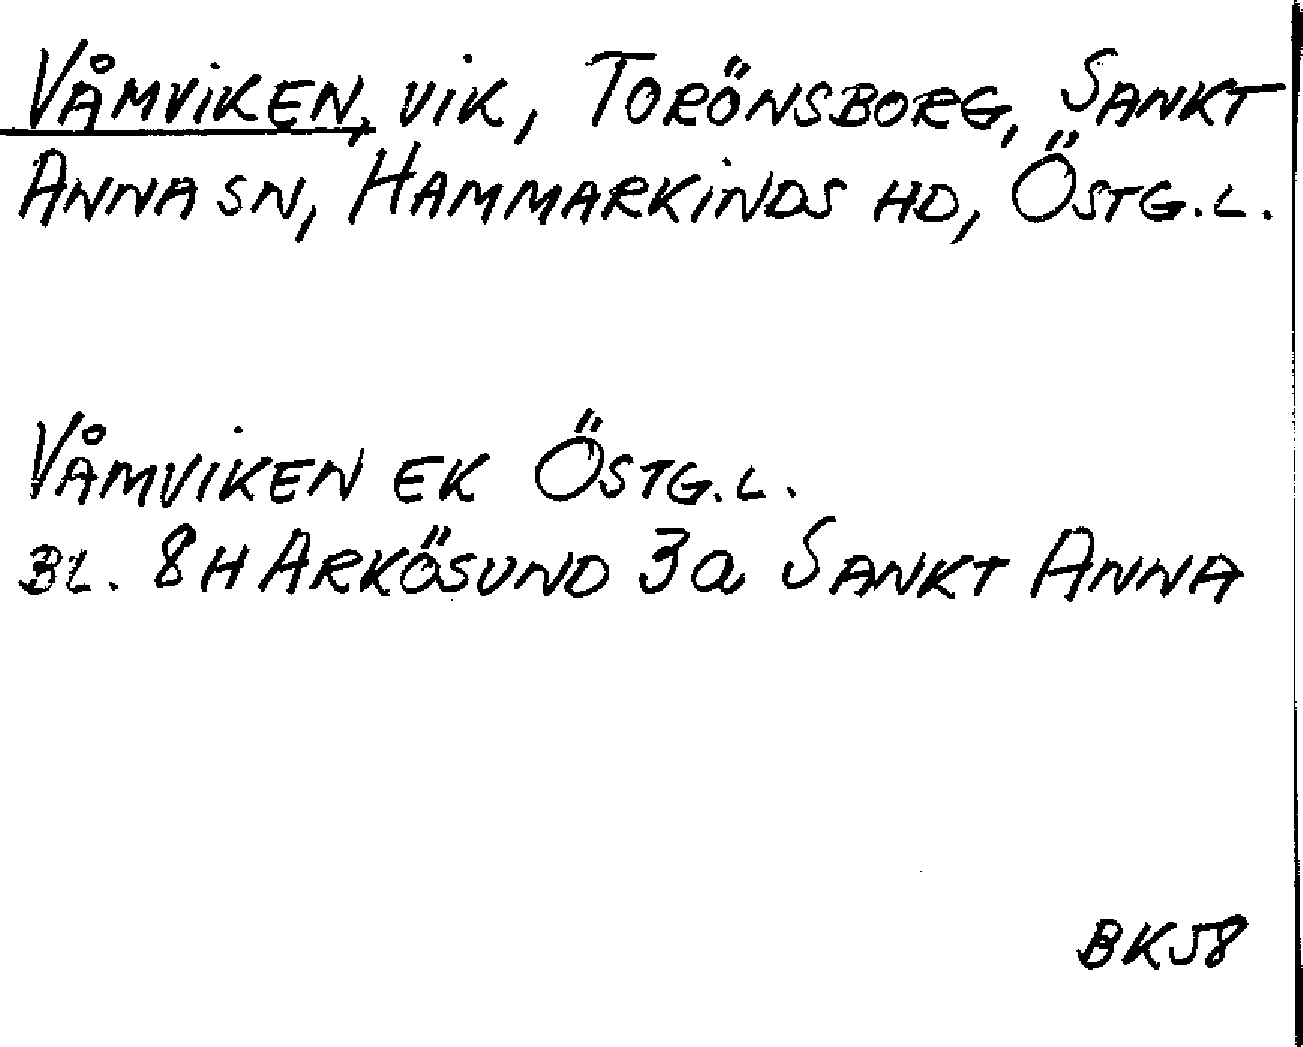 VÅMVIKEN, VIK, TORÖNSBORG, SANKT
ANNA SN, HAMMARKINDS HD, ÖSTG.L.
VÅMVIKEN EK ÖSTG.L.
BL. 8H ARKÖSUND 3a SANKT ANNA
BK58